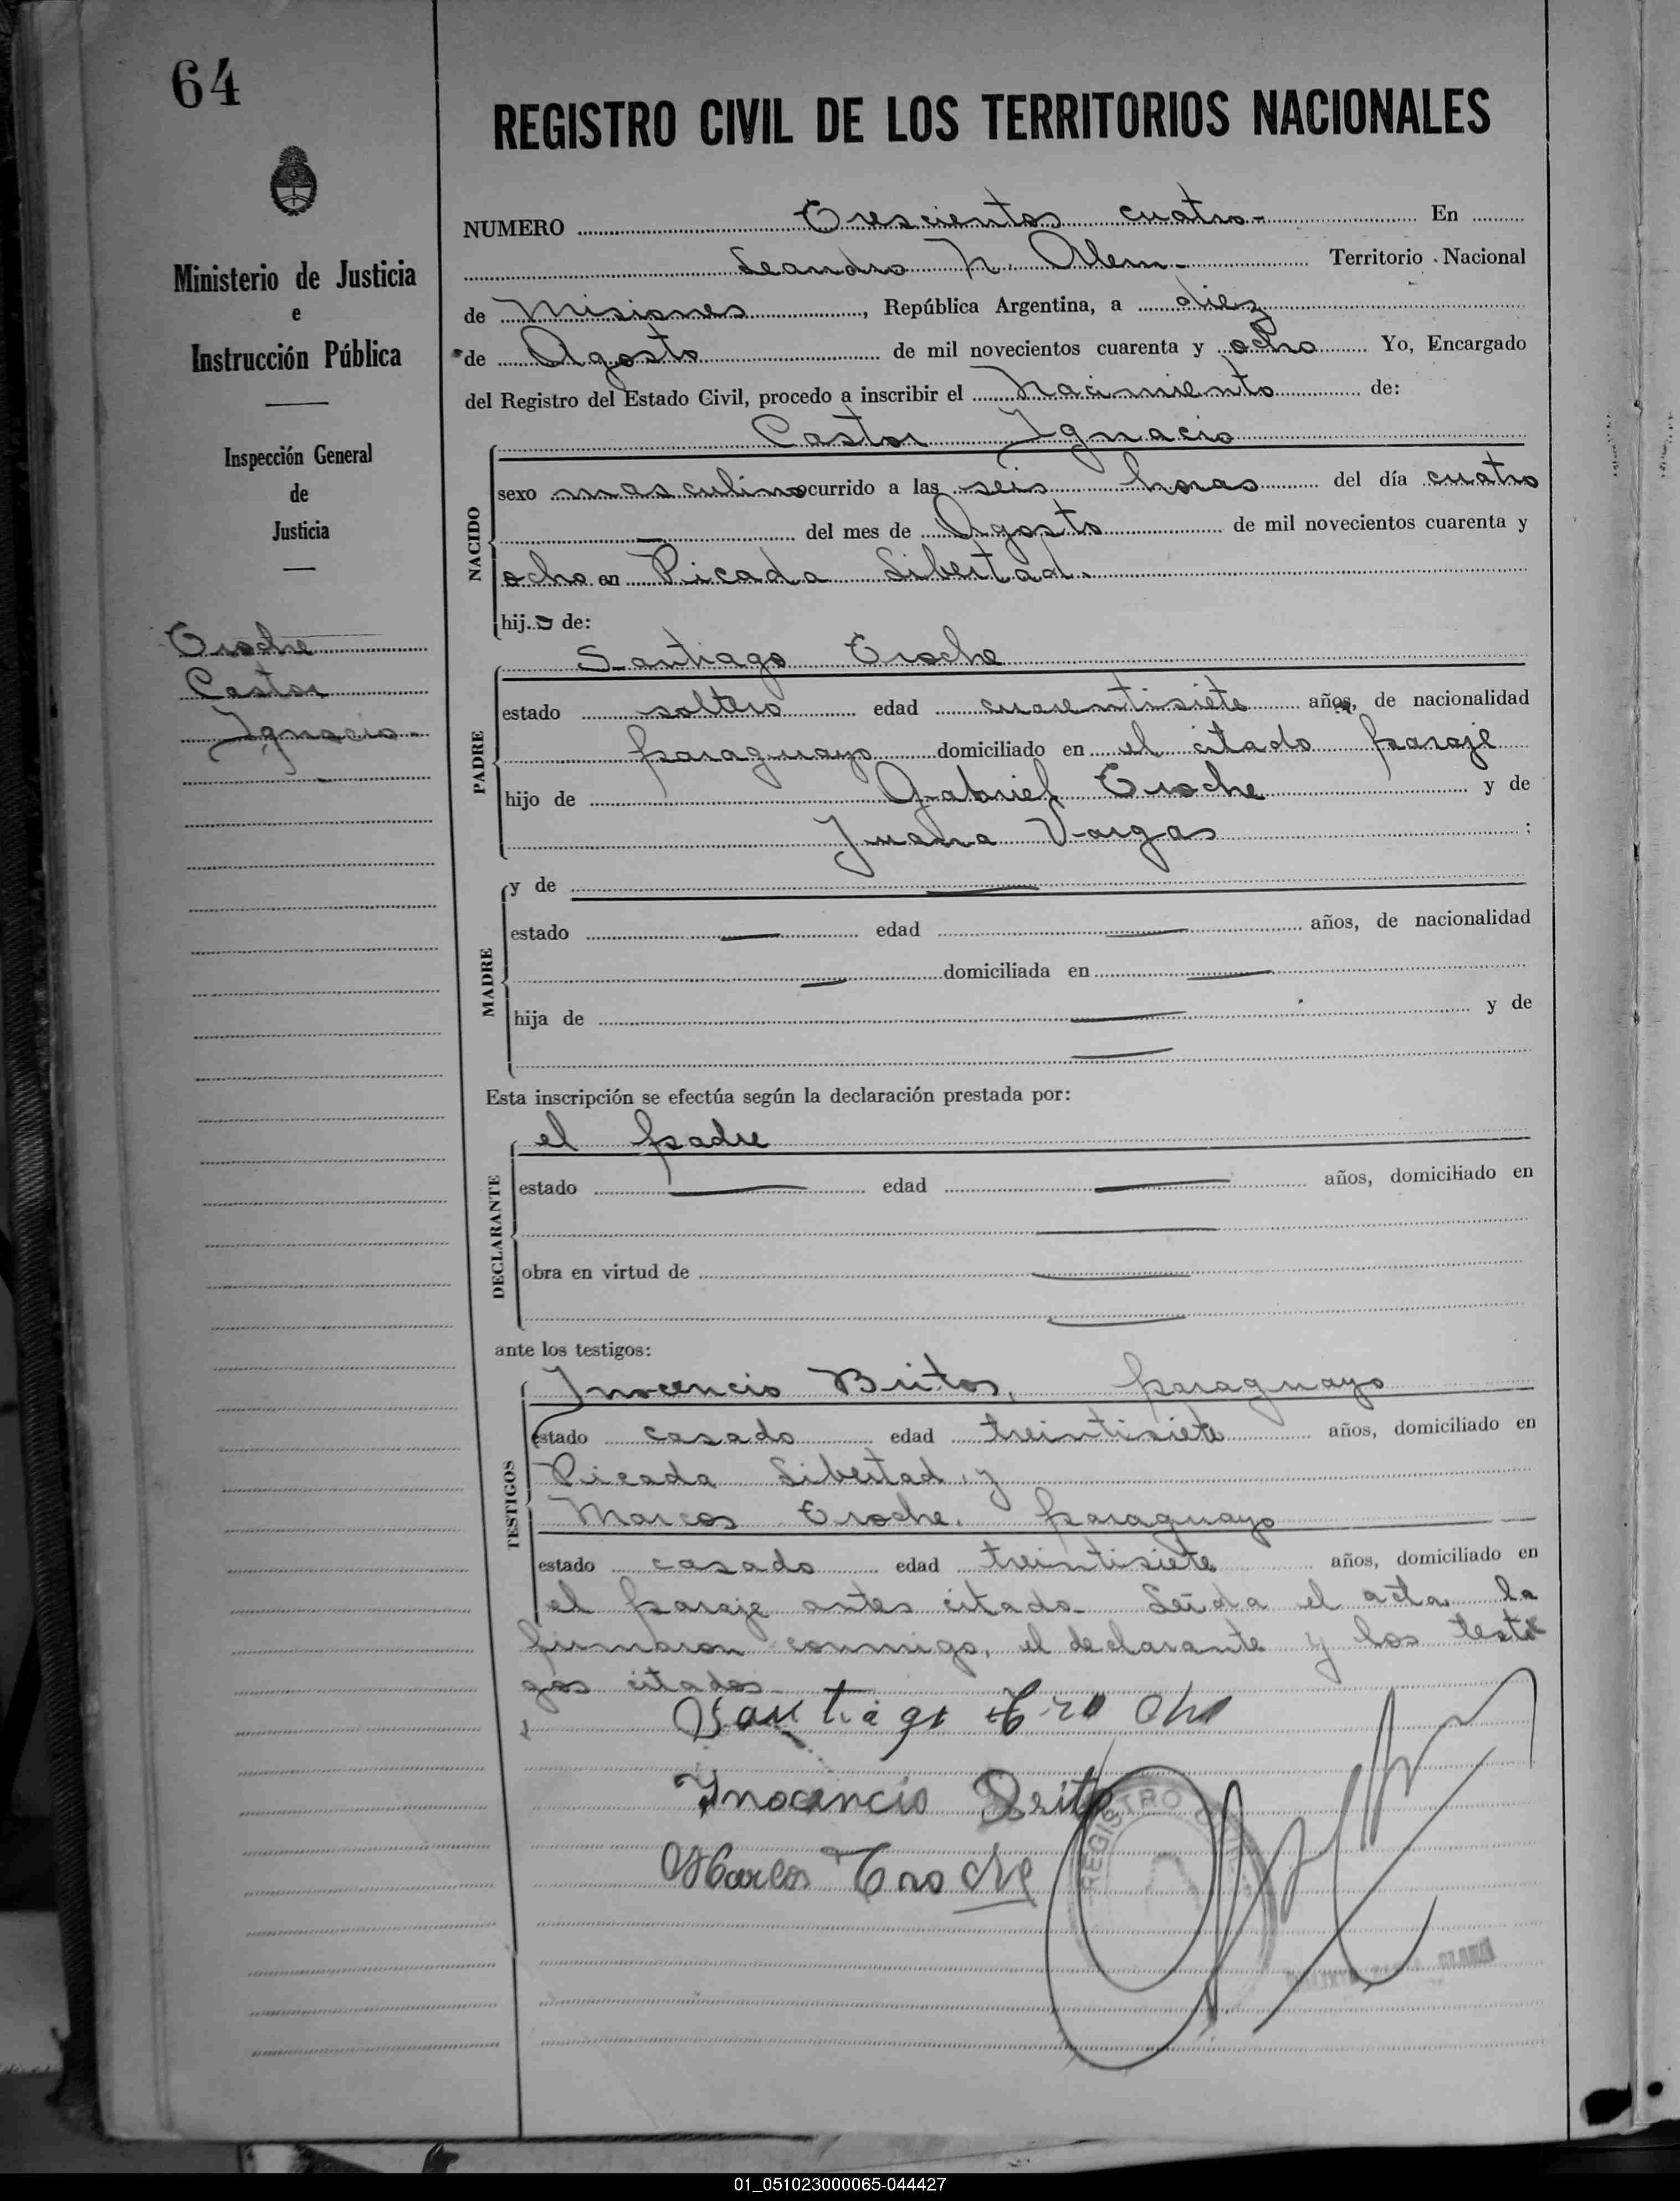 64
Ministerio de Justicia
e
Instrucción Pública
Inspección General
de
Justicia
Troche
Castor
Ignacio.-
REGISTRO CIVIL DE LOS TERRITORIOS NACIONALES
NUMERO Trescientos cuatro.- En
Leandro N. Alem.- Territorio Nacional
de Misiones, República Argentina, a diez
de Agosto de mil novecientos cuarenta y ocho Yo, Encargado
del Registro del Estado Civil, procedo a inscribir el Nacimiento de:
Castor Ignacio
NACIDO
sexo masculino ocurrido a las seis horas del día cuatro
del mes de Agosto de mil novecientos cuarenta y
ocho en Picada Libertad.
hijo de:
PADRE
Santiago Troche
estado soltero edad cuarentisiete años, de nacionalidad
paraguayo domiciliado en el citado paraje
hijo de Gabriel Troche y de
Juana Vargas ;
MADRE
y de
estado edad años, de nacionalidad
domiciliada en
hija de y de
Esta inscripción se efectúa según la declaración prestada por:
DECLARANTE
el padre
estado edad años, domiciliado en
obra en virtud de
ante los testigos:
TESTIGOS
Inocencio Britos, paraguayo
estado casado edad treintisiete años, domiciliado en
Picada Libertad, y
Marcos Troche, paraguayo
estado casado edad treintisiete años, domiciliado en
el paraje antes citado. Leída el acta, la
firmaron conmigo, el declarante y los testi
gos citados.-
Santiago Troche
Inocencio Brito
Marcos Troche
REGISTRO CIVIL
01_051023000065-044427